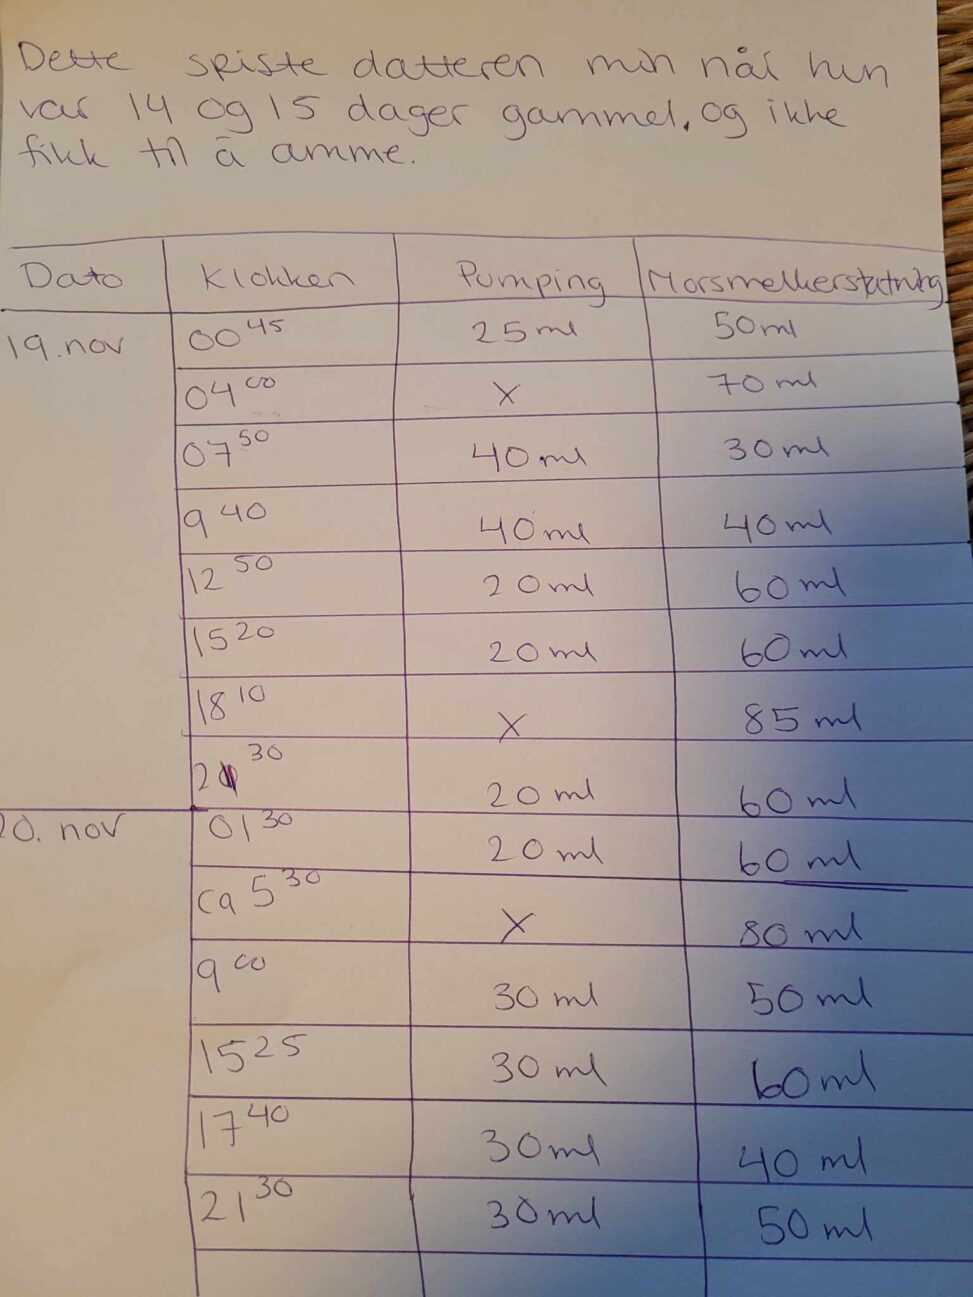 Dette spiste datteren min når hun
var 14 og 15 dager gammel, og ikke
fikk til å amme.
Dato Klokken Pumping Morsmelkerstatning
19. nov 00 45 25 ml 50 ml
04 00 X 70 ml
07 50 40 ml 30 ml
9 40 40 ml 40 ml
12 50 20 ml 60 ml
15 20 20 ml 60 ml
18 10 X 85 ml
30 20 ml 60 ml
20. nov 01 30 20 ml 60 ml
ca 5 30 X 80 ml
9 00 30 ml 50 ml
15 25 30 ml 60 ml
17 40 30 ml 40 ml
21 30 30 ml 50 ml